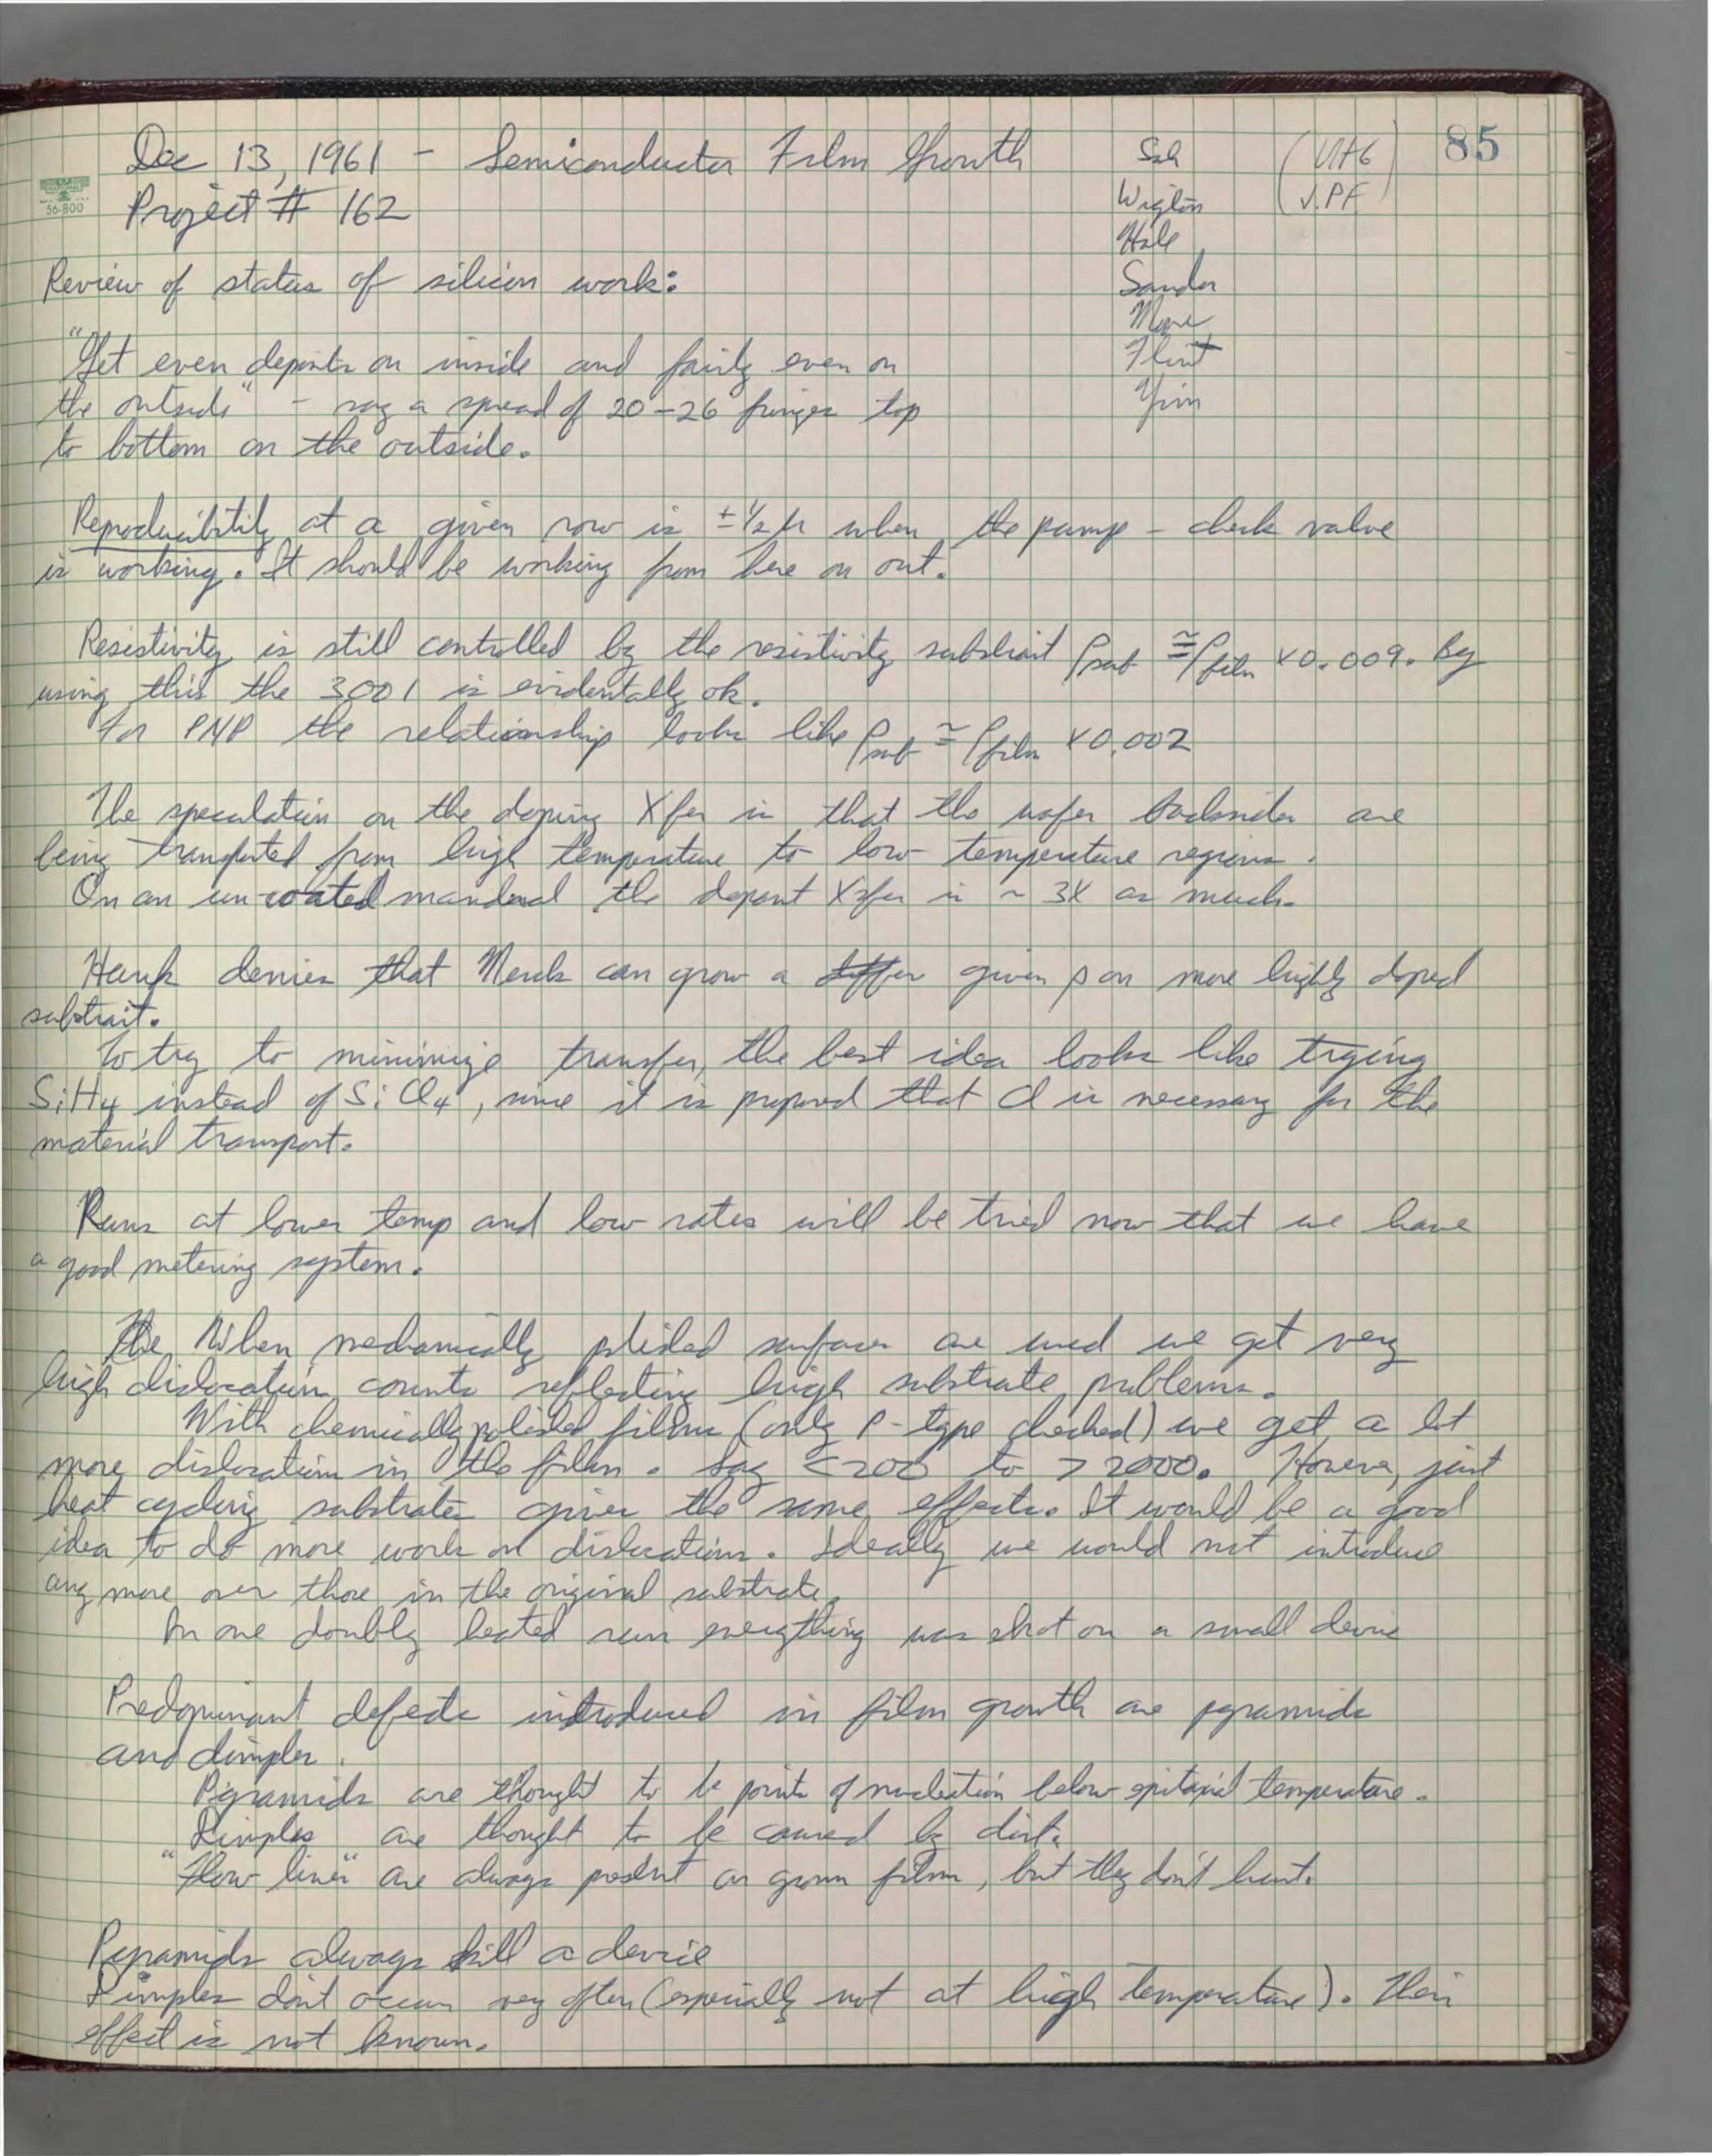 85
Dec 13, 1961 - Semiconductor Film Growth
Project # 162
NATIONAL
56-800
Sah
Wiglön
Hale
Sandor
Moore
Flint
Yim
(VHG
V.PF)
Review of status of silicon work:
"Get even deposits on inside and fairly even on
the outside" - say a spread of 20-26 fringes top
to bottom on the outside.
Reproducibility at a given row is ±1/2 μ when the pump - check valve
is working. It should be working from here on out.
Resistivity is still controlled by the resistivity substrait ρsub ≅ ρfilm x 0.009. By
using this the 3001 is evidentally ok.
For PNP the relationship looks like ρsub ≅ ρfilm x 0.002
The speculation on the doping Xfer is that the wafer backsides are
being transported from high temperature to low temperature regions.
On an un-coated mandrel the dopant Xsfer is ~ 3X as much.
Hank denies that Merck can grow a given ρ on more highly doped
substrait.
To try to minimize transfer, the best idea looks like trying
SiH4 instead of SiCl4, since it is proposed that Cl is necessary for the
material transport.
Runs at lower temp and low rates will be tried now that we have
a good metering system.
The When mechanically polished surfaces are used we get very
high dislocation counts reflecting high substrate problems.
With chemically polished films (only P-type checked) we get a lot
more dislocation in the film. Say <200 to >2000. However, just
heat cycling substrates gives the same effects. It would be a good
idea to do more work on dislocations. Ideally we would not introduce
any more over those in the original substrate.
In one doubly heated run everything was shot on a small device
Predominant defects introduced in film growth are pyramids
and dimples.
Pyramids are thought to be points of nucleation below epitaxial temperature.
Dimples are thought to be caused by dirt.
"Flow lines" are always present on grown films, but they don't hurt.
Pyramids always kill a device
Dimples dont occur very often (especially not at high temperature). Their
effect is not known.